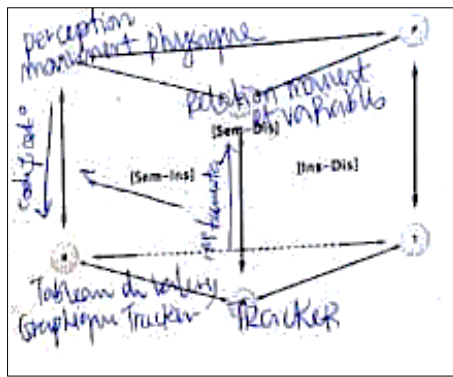 perception
mouvement physique
Relation mouvemt
et variables
[Sem-Dis]
[Sem-Ins]
[Ins-Dis]
Tableau de valeurs
Graphique Tracker
TRACKER